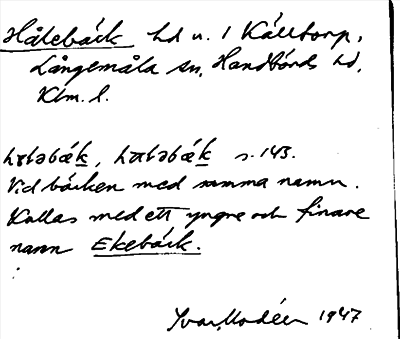 Hålebäck hd u. 1 Källtorp,
Långemåla sn, Handbörds hd,
Klm. l.
s. 143.
Vid bäcken med samma namn.
Kallas med ett yngre och finare
namn Ekebäck.
Yvar Modéer 1947